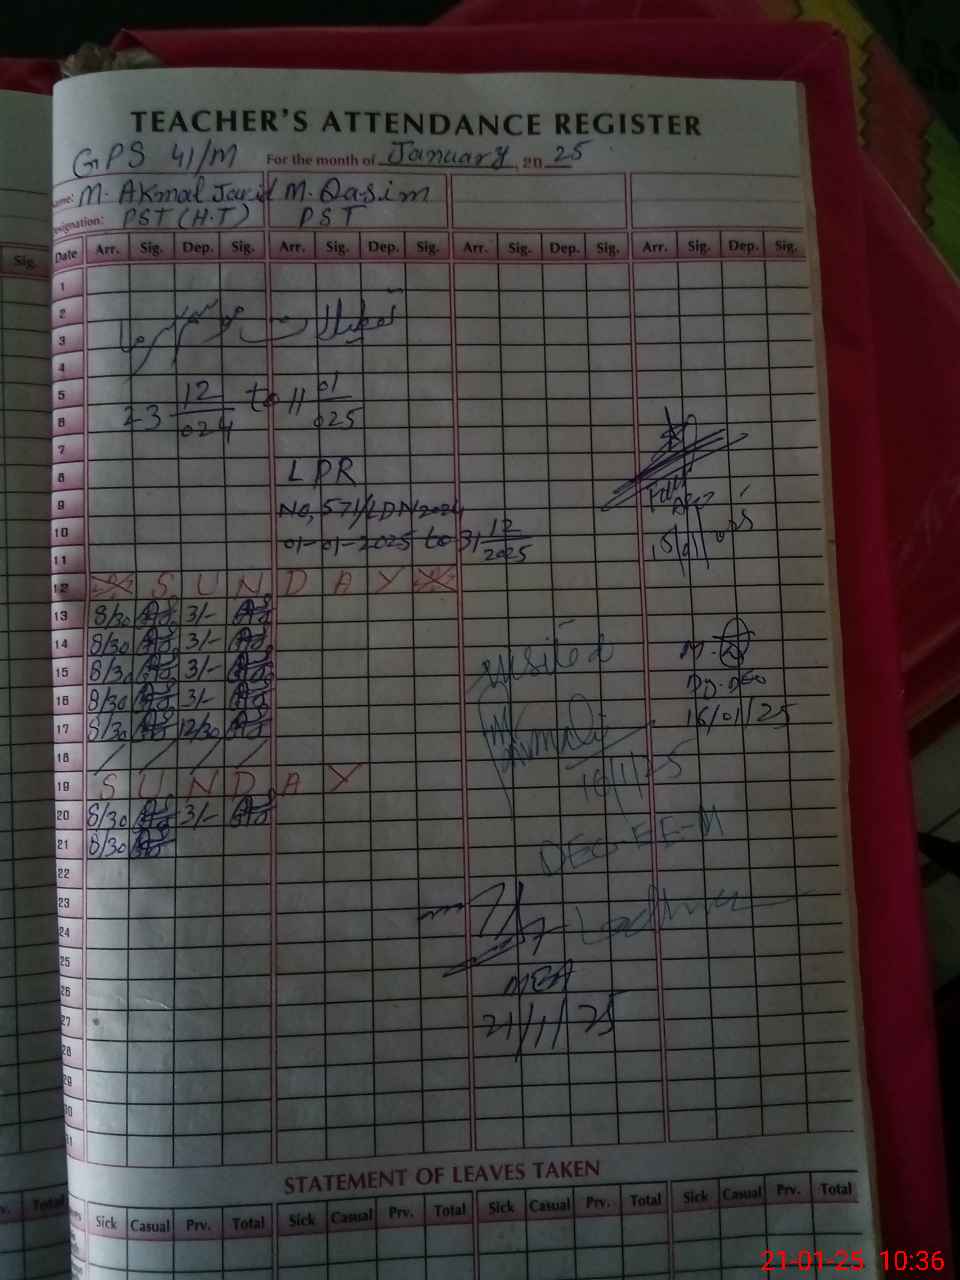 TEACHER'S ATTENDANCE REGISTER
GPS 41/M For the month of January, 2025
Name: M. Akmal Javid M. Qasim
Designation: PST (H.T) PST
Sig. Date Arr. Sig. Dep. Sig. Arr. Sig. Dep. Sig. Arr. Sig. Dep. Sig. Arr. Sig. Dep. Sig.
1
2
3
4
5
23 12/024 to 11 01/025
6
7
8 LPR
9 No, 571/LDN 2024
10 01-01-2025 to 31 12/2025
15/01/025
11
12 SUNDAY
13 8/30 3/-
14 8/30 3/-
visited
15 8/30 3/-
Dy. DEO
16 8/30 3/-
16/01/25
17 8/30 12/30
18
16/1/25
19 SUNDAY
20 8/30 3/-
21 8/30
DEO-EE-M
22
23
24
Lodhran
25
26
MEA
27
21/1/25
28
29
30
31
STATEMENT OF LEAVES TAKEN
Prv. Total Sick Casual Prv. Total Sick Casual Prv. Total Sick Casual Prv. Total Sick Casual Prv. Total
21-01-25 10:36